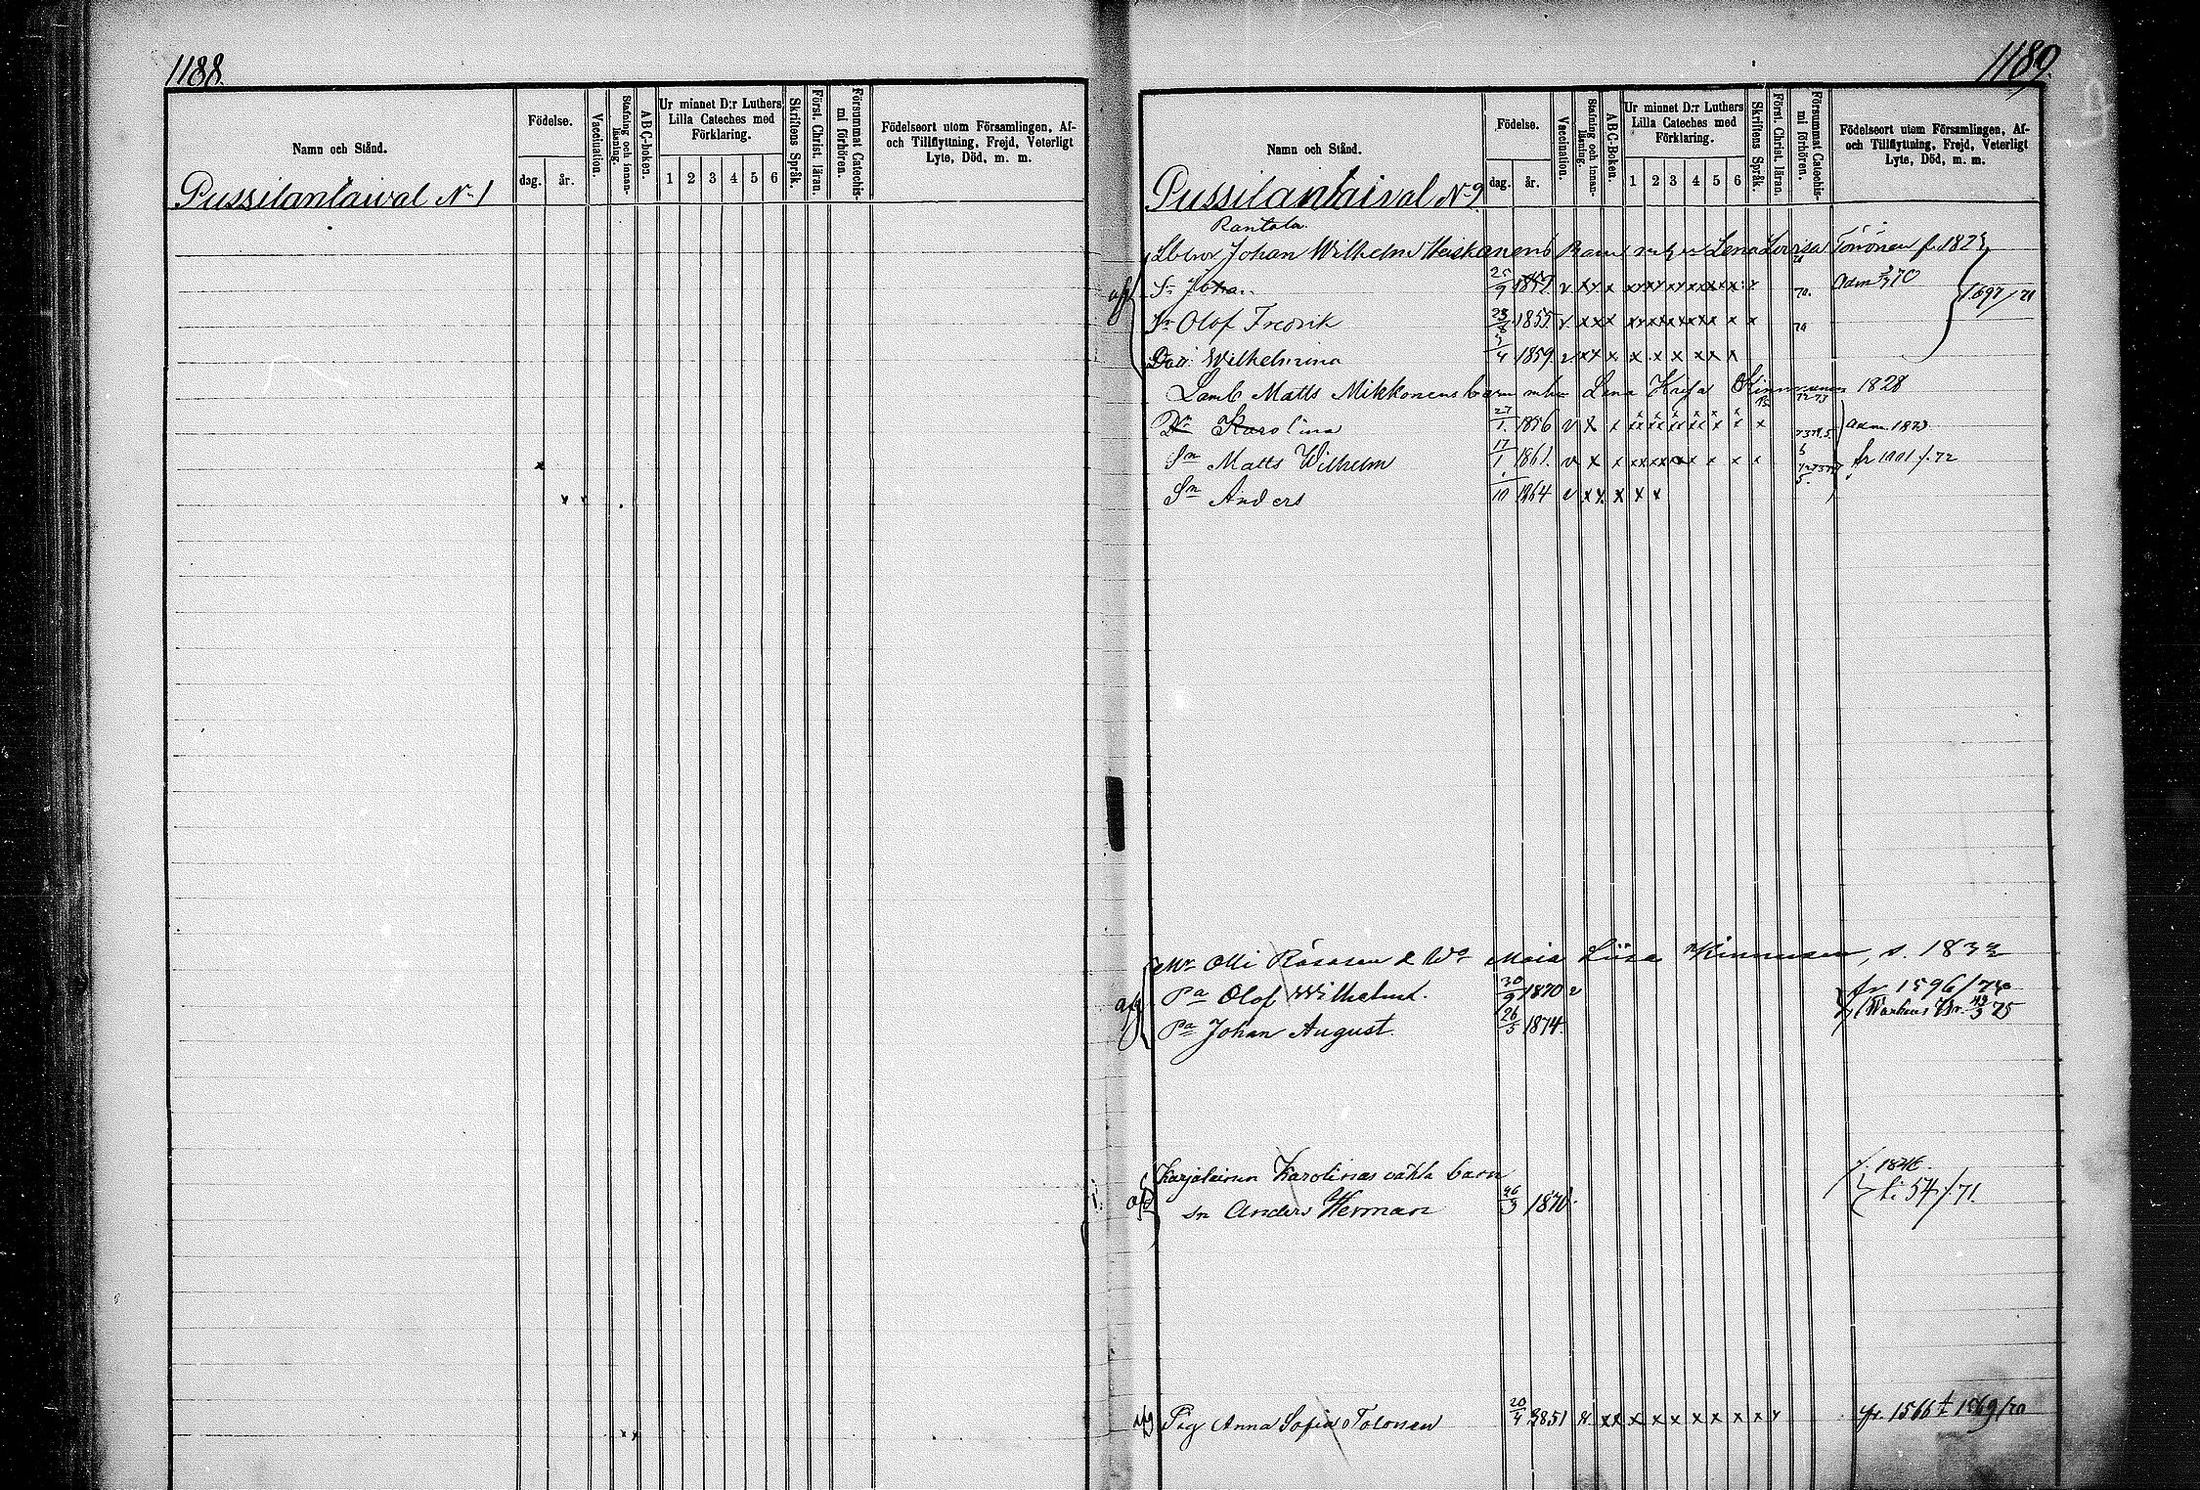 1188.
Namn och Stånd.
Födelse.
dag. år.
Vaccination.
Stafning och innan-läsning.
ABC-boken.
Ur minnet D:r Luthers Lilla Cateches med Förklaring.
1 2 3 4 5 6
Skriftens Språk.
Först. Christ. läran.
Försummat Catechis-mi förhören.
Födelseort utom Församlingen, Af-
och Tillflyttning, Frejd, Veterligt
Lyte, Död, m. m.
Pussilantaival No 1
1189.
Namn och Stånd.
Födelse.
dag. år.
Vaccination.
Stafning och innan-läsning.
ABC-Boken.
Ur minnet D:r Luthers Lilla Cateches med Förklaring.
1 2 3 4 5 6
Skriftens Språk.
Först. Christ. läran.
Försummat Catechis-mi förhören.
Födelseort utom Församlingen, Af-
och Tillflyttning, Frejd, Veterligt
Lyte, Död, m. m.
Pussilantaival No 2
Rantala
Johan Wilhelm Heiskanens Barn Lena Lovisa Törönen
Sn Johan 25/9 v x x x 70. adm 70 1697/71
Sn Olof Fredrik 23/6 1855 v x x x x x
Dotr Wilhelmina 5/4 1859 v x x x x x x x x x
Lamb Matts Mikkonens barn mhu Lena Kajsa Kinnunen 1828
Dr Karolina 27/1 1856 v x x adm. 1873
Sn Matts Wilhelm 17/1 1861. v x x x fr 1001 f. 72
Sn Anders 1/10 1864 v x x x x x
Mr Olli Räsäsen & Wa Maia Liisa Kinnusen, s. 1832
Pa Olof Wilhelm. 30/9 1870 v fr 1596/74
Pa Johan August. 26/5 1874. Warkaus 75
Karjalainen Karolinas oäkta barn f. 1846.
afg sn Anders Herman 26/3 1870. ti 54/71.
afg Pig Anna Sofia Tolonen 20/4 1851 v x x x x x x x x x x fr. 1566 t 1569/70